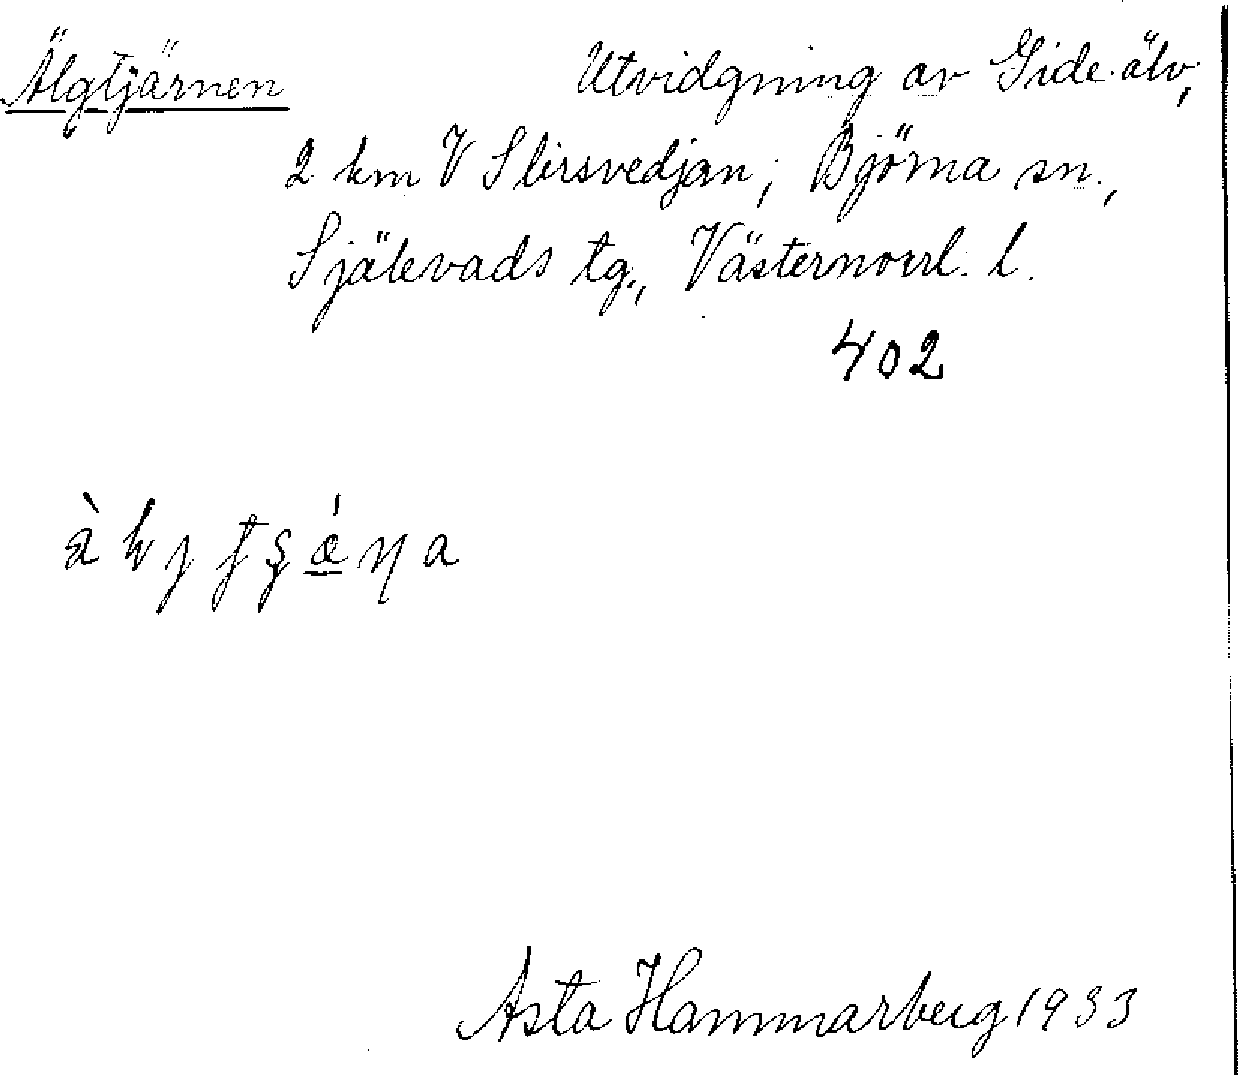 Älgtjärnen Utvidgning av Gide älv,
2 km V Slirsvedjan; Björna sn.,
Själevads tg., Västernorrl. l.
402
Asta Hammarberg 1933